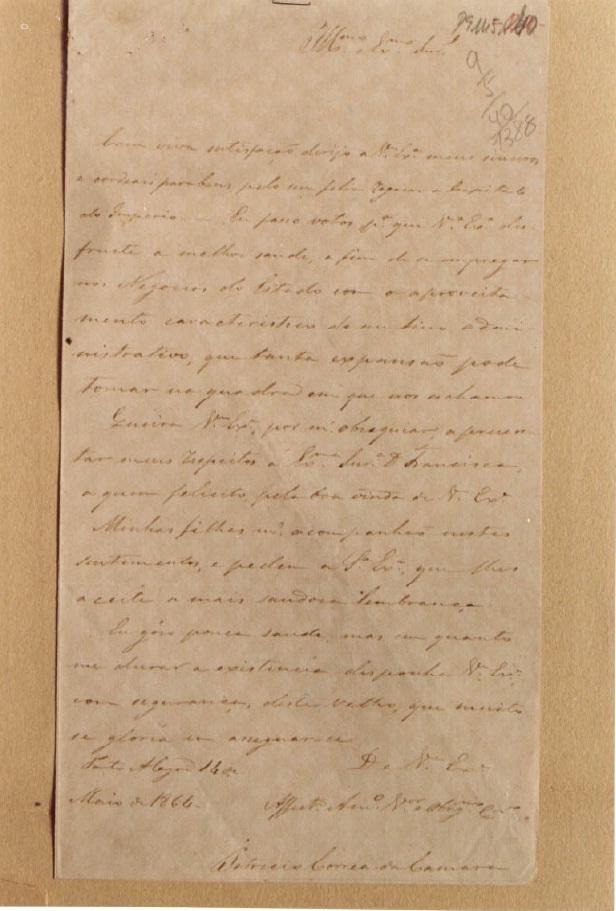 Illmo. e Exmo. Snr.
Com viva satisfação dirijo a Va. Exa. meus sinceros
e cordeais parabens, pelo seu feliz regresso a
do Imperio. — Eu faço votos pa. que Va. Exa. dis-
fructe a melhor saude, a fim de a empregar
nos Negocios do Estado com o aproveita-
mento caracteristico de um tino admi-
nistrativo, que tanta expansão pode
tomar na quadra em que nos achamos
Queira Va. Exa., por me. obsequiar, apresen-
tar meus respeitos a Exma. Snra. D. Francisca,
a quem felicito pela boa vinda de V. Exa.
Minhas filhas me. acompanhão nestes
sentimentos, e pedem a Sa. Exa. que lhes
aceite a mais saudosa lembrança
Eu góso pouca saude, mas em quanto
me durar a existencia disponha Va. Exa.
com segurança, deste velho, que muito
se gloria em assegurar-se
De Va. Exa.
Porto Alegre 14 de
Maio de 1864.
Affecto. Amo. Vor. e Obrigmo. Cro.
Patricio Correa da Camara